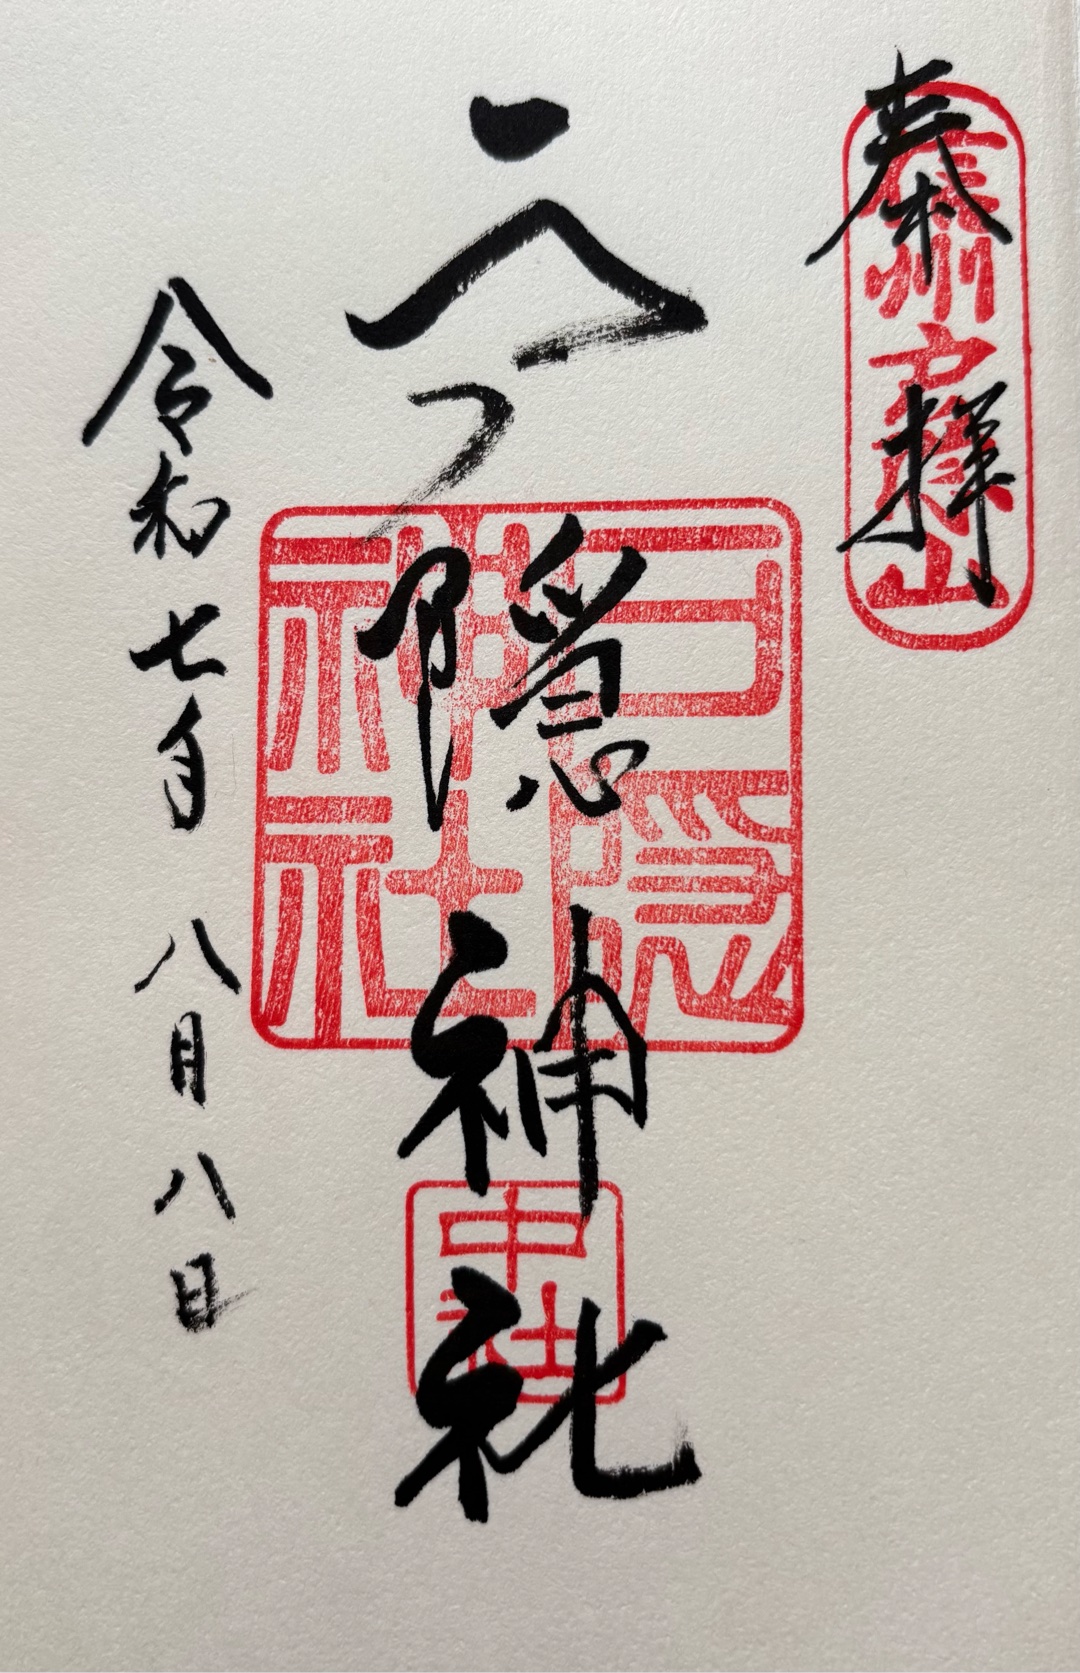 奉拝
信州戸隠山
戸隠神社
戸隠神社
中社
令和七年八月八日